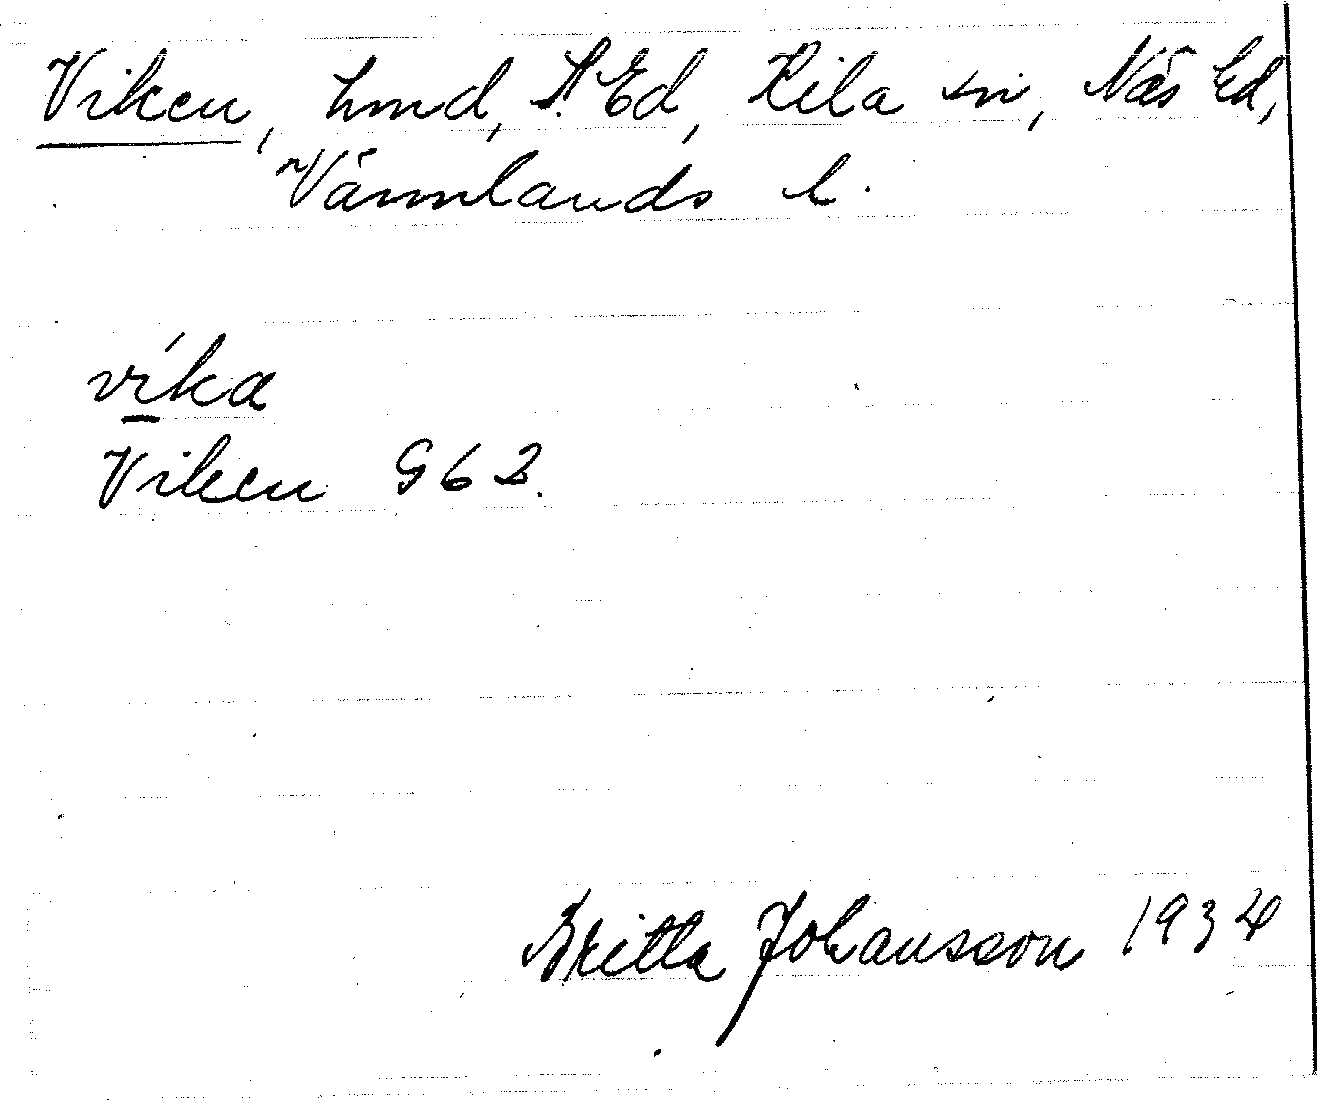 Viken, hmd, S. Ed, Kila sn, Näs hd,
Värmlands l.
víka
Viken G62.
Britta Johansson 1934